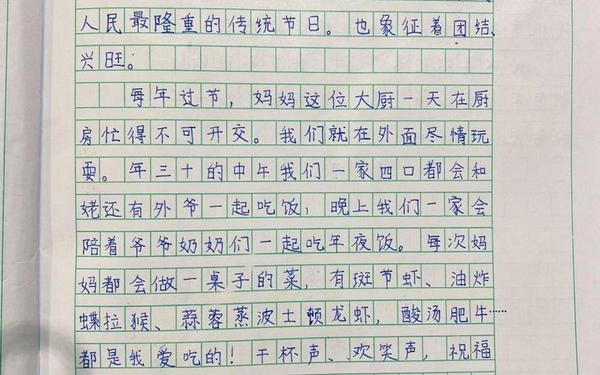 人民最隆重的传统节日。也象征着团结、
兴旺。
每年过节，妈妈这位大厨一天在厨
房忙得不可开交。我们就在外面尽情玩
耍。年三十的中午我们一家四口都会和
姥还有外爷一起吃饭，晚上我们一家会
陪着爷爷奶奶们一起吃年夜饭。每次妈
妈都会做一桌子的菜，有斑节虾、油炸
蝶拉猴、蒜蓉蒸波士顿龙虾，酸汤肥牛……
都是我爱吃的！干杯声、欢笑声，祝福